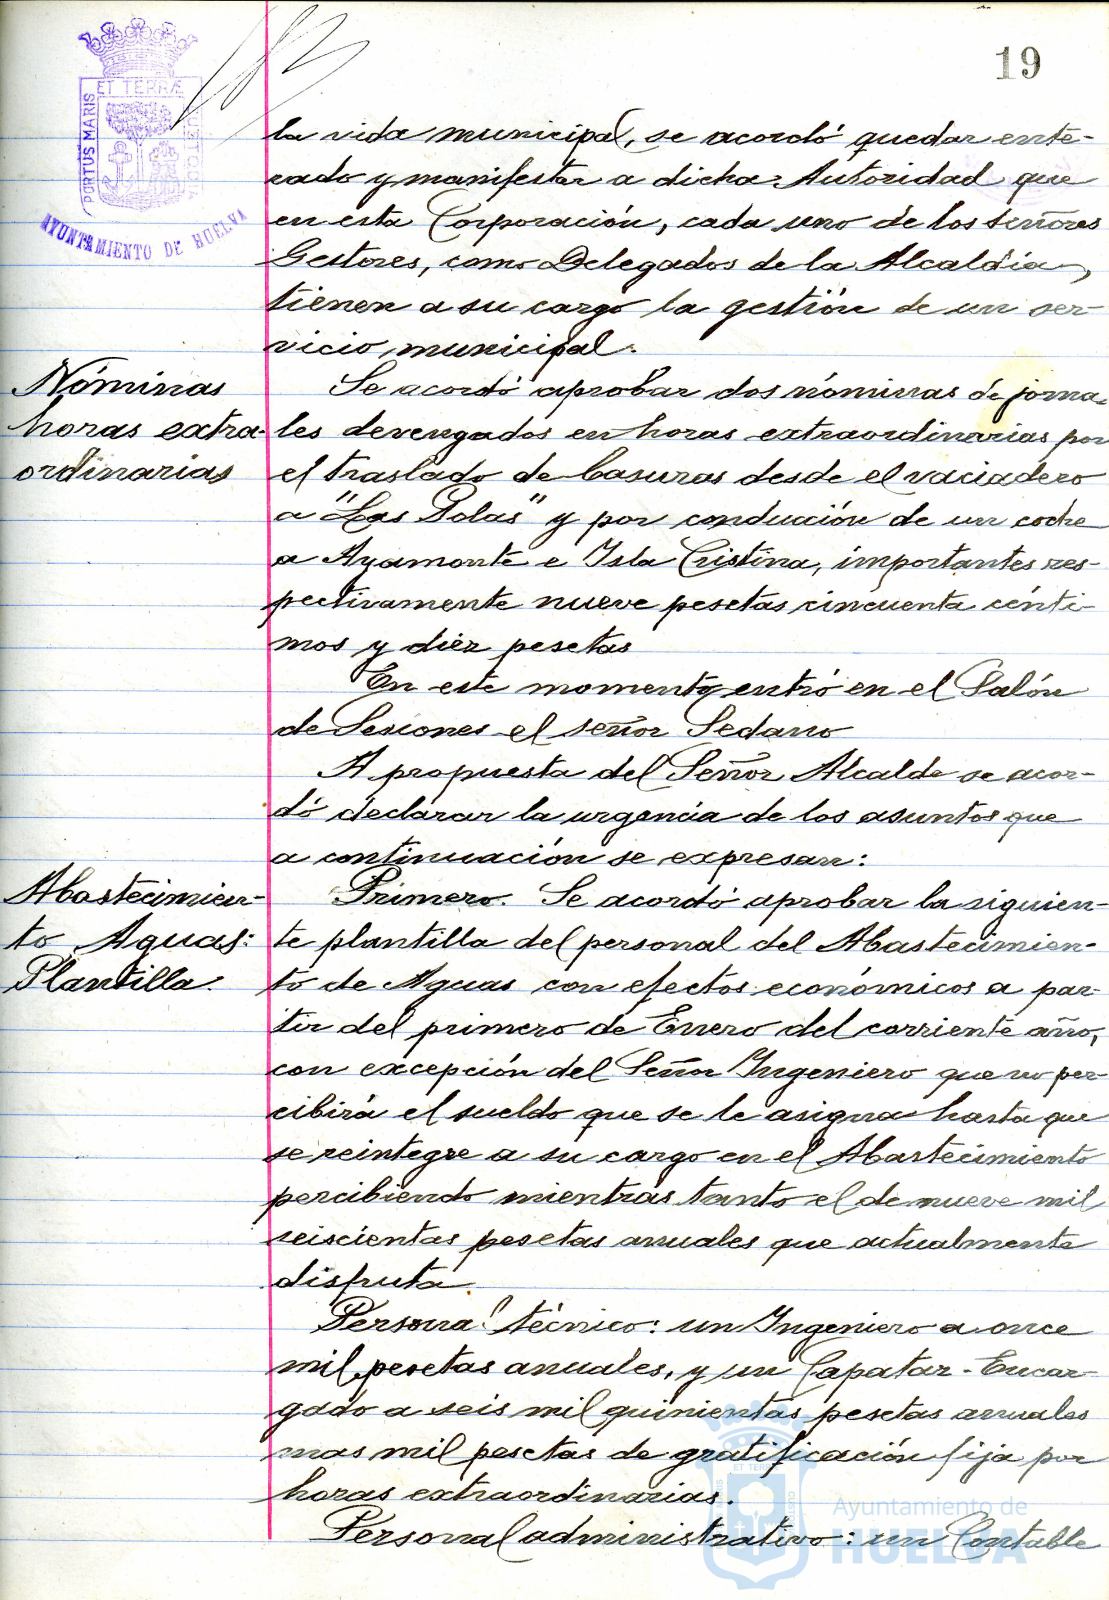 19
ET TERRÆ
PORTUS MARIS
AYUNTAMIENTO DE HUELVA
la vida municipal, se acordó quedar ente-
rado y manifestar a dicha Autoridad que
en esta Corporación, cada uno de los señores
Gestores, como Delegados de la Alcaldía,
tienen a su cargo la gestión de un ser-
vicio municipal.
Nóminas
horas extra-
ordinarias
Se acordó aprobar dos nóminas de jorna-
les devengados en horas extraordinarias por
el traslado de basuras desde el vaciadero
a "Las Polas" y por conducción de un coche
a Ayamonte e Isla Cristina, importantes res-
pectivamente nueve pesetas cincuenta cénti-
mos y diez pesetas
En este momento entró en el Salón
de Sesiones el señor Sedano
A propuesta del Señor Alcalde se acor-
dó declarar la urgencia de los asuntos que
a continuación se expresan:
Abastecimien-
to Aguas:
Plantilla.
Primero. Se acordó aprobar la siguien-
te plantilla del personal del Abastecimien-
to de Aguas con efectos económicos a par-
tir del primero de Enero del corriente año,
con excepción del Señor Ingeniero que no per-
cibirá el sueldo que se le asigna hasta que
se reintegre a su cargo en el Abastecimiento
percibiendo mientras tanto el de nueve mil
seiscientas pesetas anuales que actualmente
disfruta.
Personal técnico: un Ingeniero a once
mil pesetas anuales, y un Capataz-Encar-
gado a seis mil quinientas pesetas anuales
mas mil pesetas de gratificación fija por
horas extraordinarias.
Personal administrativo: un Contable
Ayuntamiento de
HUELVA